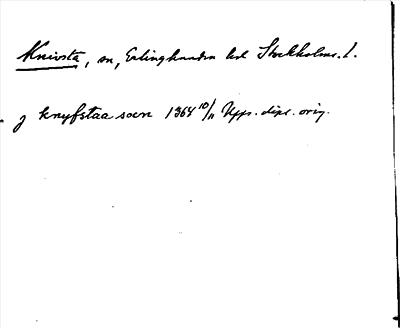 Knivsta, sn, Erlinghundra hd Stockholms. l.
j knyfstaa socn 1364 10/11 Upps. dipl. orig.